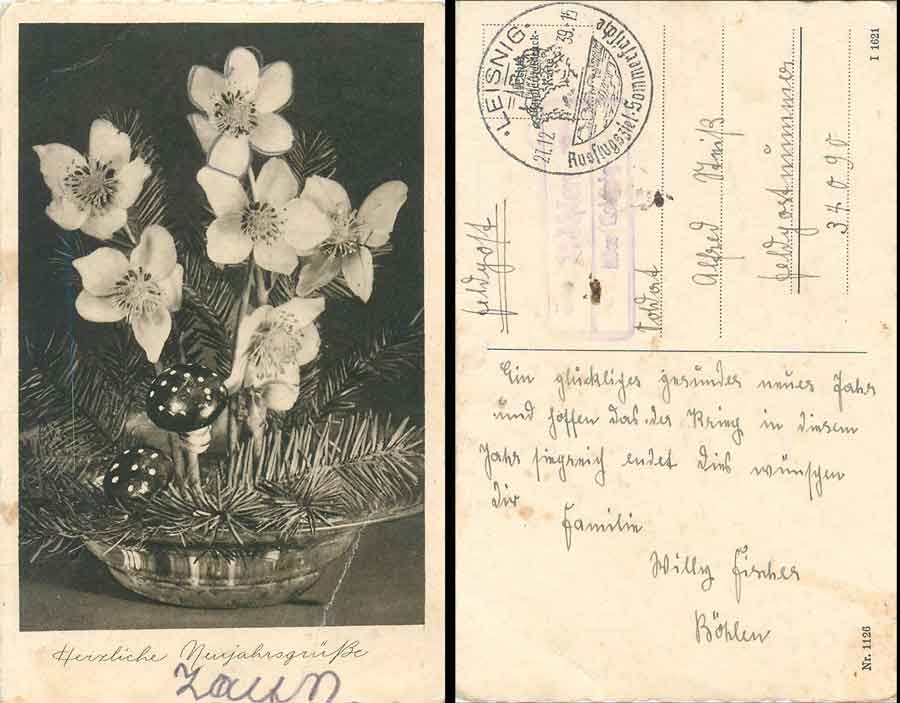 Herzliche Neujahrsgrüße
LEISNIG
27.12.39.-15
Ausflugsziel. Sommerfrische
Feldpost
Soldat
Alfred
Feldpostnummer
37090
Ein glückliches gesundes neues Jahr
und hoffen das der Krieg in diesem
Jahr siegreich endet dies wünschen
Dir
Familie
Willy Fischer
Böhlen
I 1621
Nr. 1126